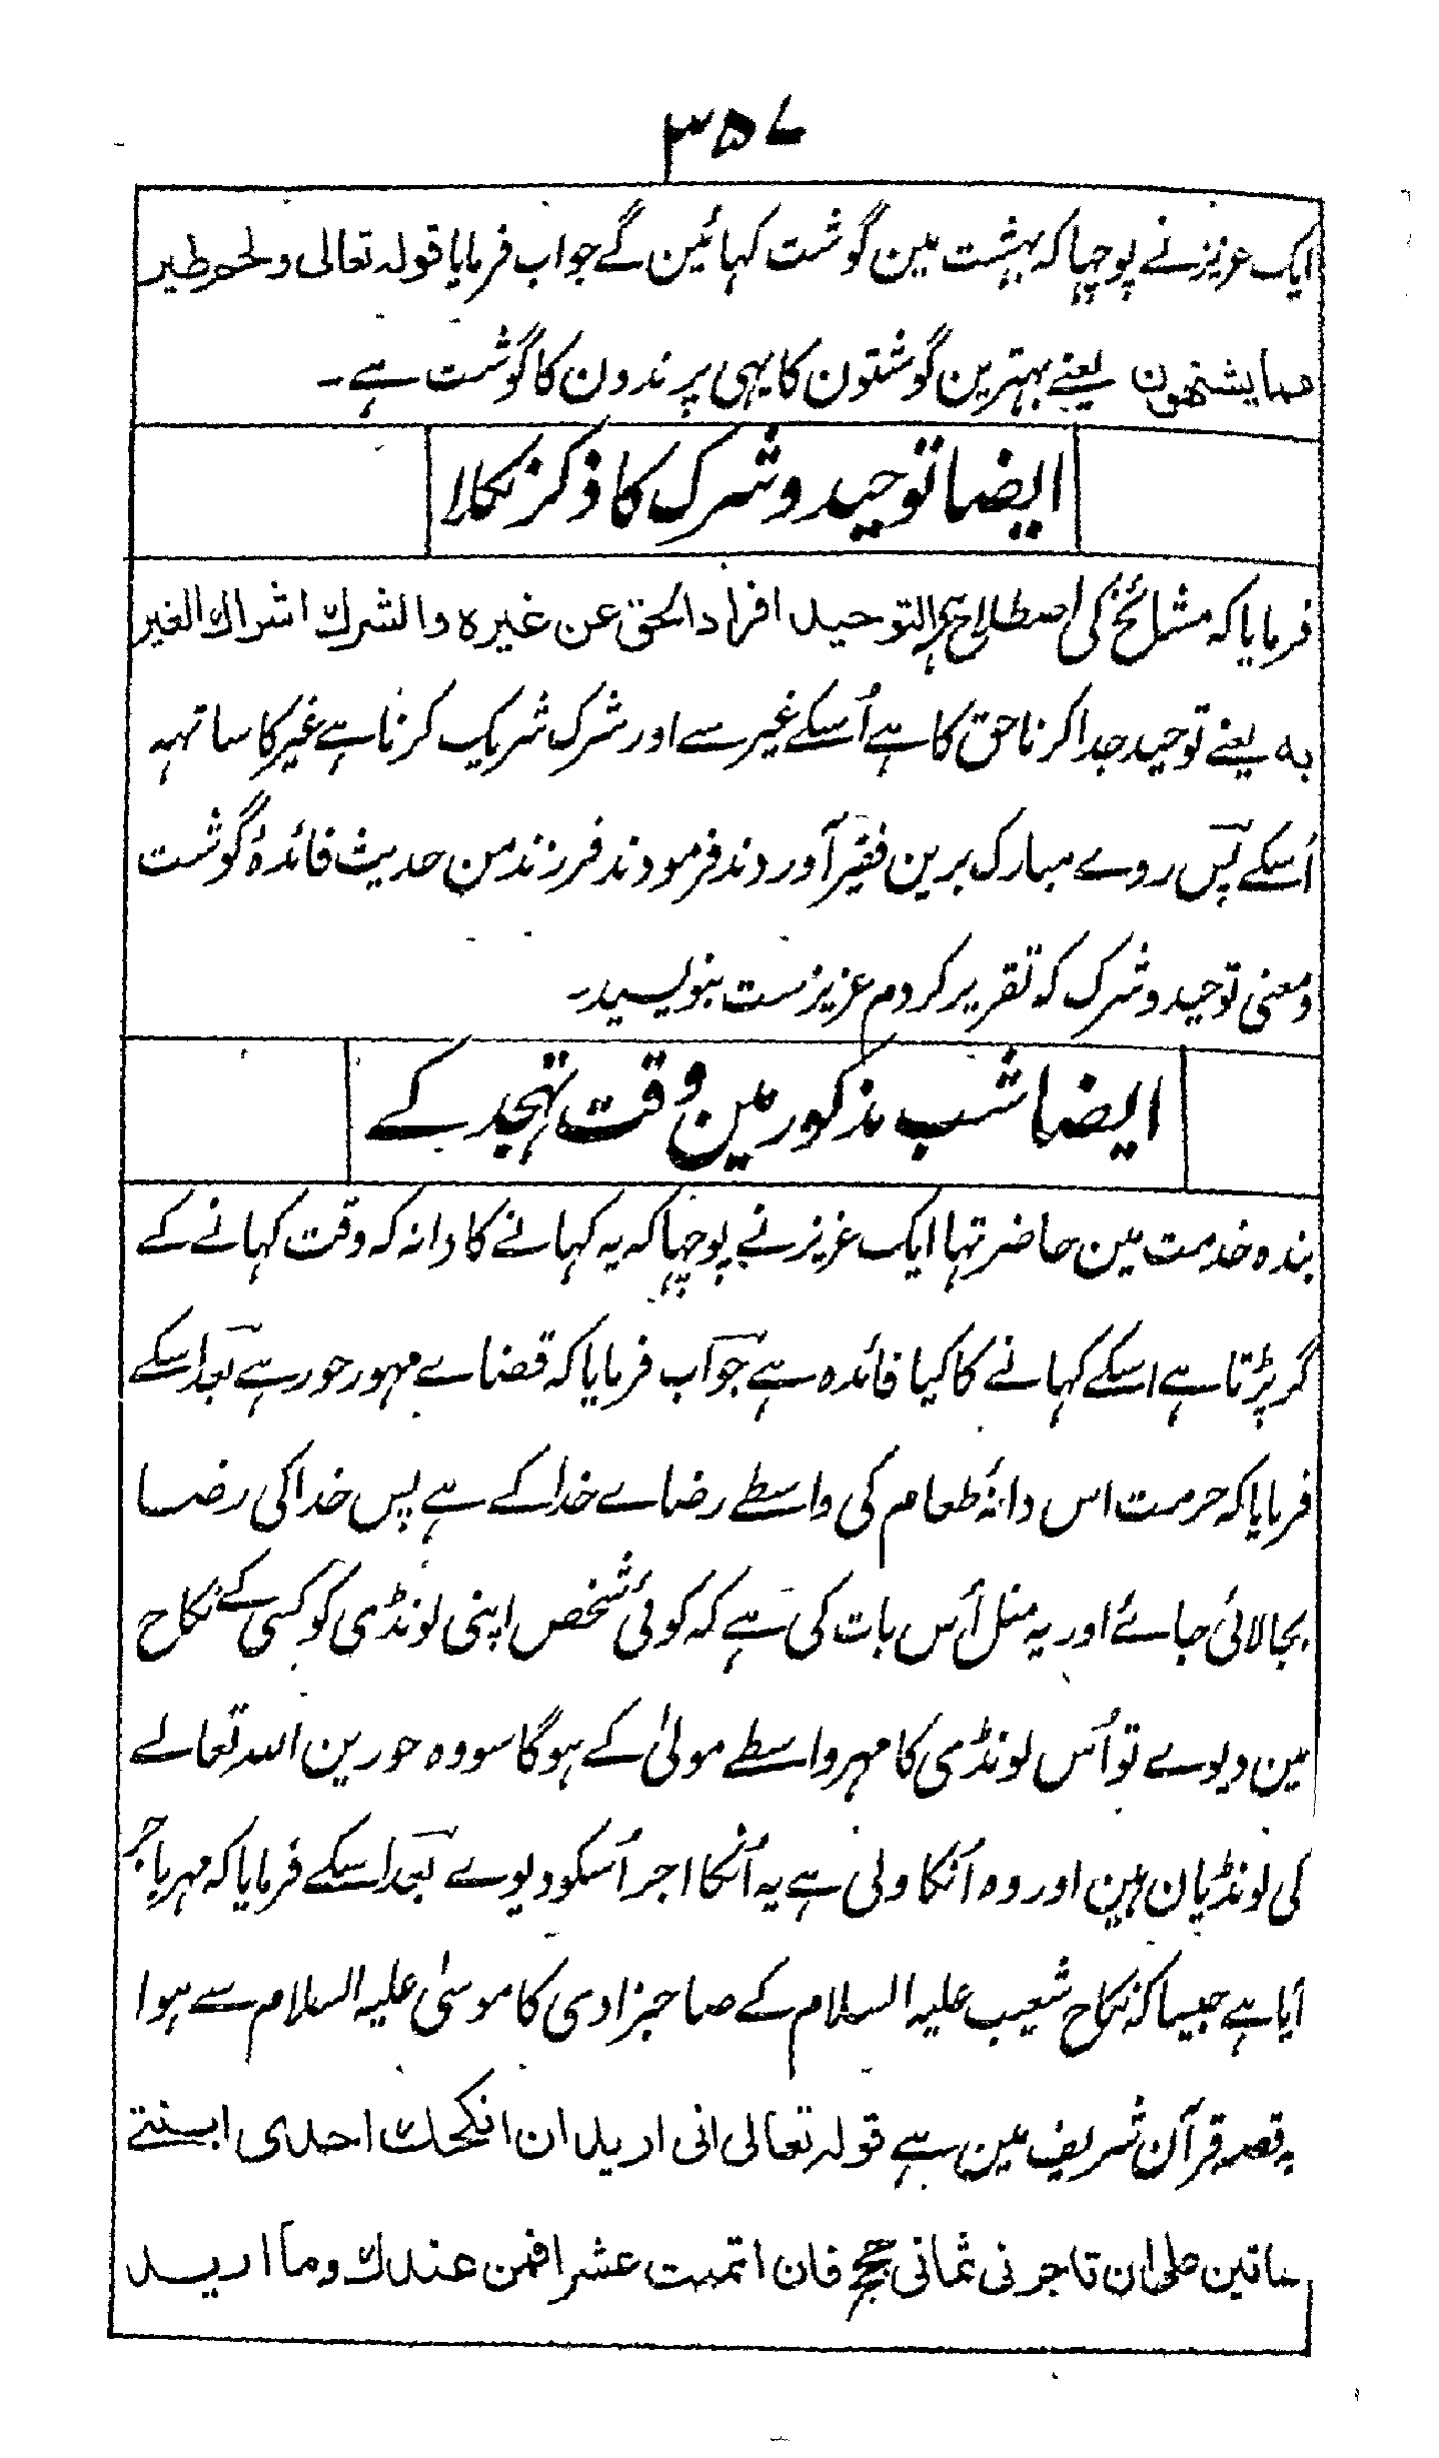 ۳۵۷
ایک عزیز نے پوچہا کہ بہشت مین گوشت کہائین گے جواب فرمایا قولہ تعالی ولحم طیر
مما یشتھون یعنے بہترین گوشتون کا یہی پرندون کا گوشت ہے ۔
ایضا توحید و شرک کا ذکر نکلا
فرمایا کہ مشائخ کی اصطلاح ہے التوحید افراد الحق عن غیرہ والشرك اشراك الغیر
بہ یعنے توحید جدا کرنا حق کا ہے اُسکے غیر سے اور شرک شریک کرنا ہے غیر کا ساتہہ
اُسکے پس روے مبارک برین فقیر آوردند فرمودند فرزند من حدیث فائدۂ گوشت
و معنی توحید و شرک کہ تقریر کردم عزیز ست بنویسید ۔
ایضا شب مذکور مین وقت تہجد کے
بندہ خدمت مین حاضر تہا ایک عزیز نے پوچہا کہ یہ کہانے کا دانہ کہ وقت کہانے کے
گر پڑتا ہے اسکے کہانے کا کیا فائدہ ہے جواب فرمایا کہ قضاے مہور حور ہے بعد اسکے
فرمایا کہ حرمت اس دانۂ طعام کی واسطے رضاے خدا کے ہے پس خدا کی رضا
بجا لائی جائے اور یہ مثل اُس بات کی ہے کہ کوئی شخص اپنی لونڈی کو کسی کے نکاح
مین دیوے تو اُس لونڈی کا مہر واسطے مولیٰ کے ہوگا سو وہ حورین اللہ تعالے
کی لونڈیان ہین اور وہ اُنکا ولی ہے یہ اُنکا اجر اُسکو دیوے بعد اسکے فرمایا کہ مہر باجر
آیا ہے جیسا کہ نکاح شعیب علیہ السلام کے صاحبزادی کا موسیٰ علیہ السلام سے ہوا
یہ قصہ قرآن شریف مین ہے قولہ تعالی انی ارید ان انکحك احدی ابنتے
ہاتین علی ان تاجرنی ثمانی حجج فان اتممت عشرا فمن عندك وما ارید